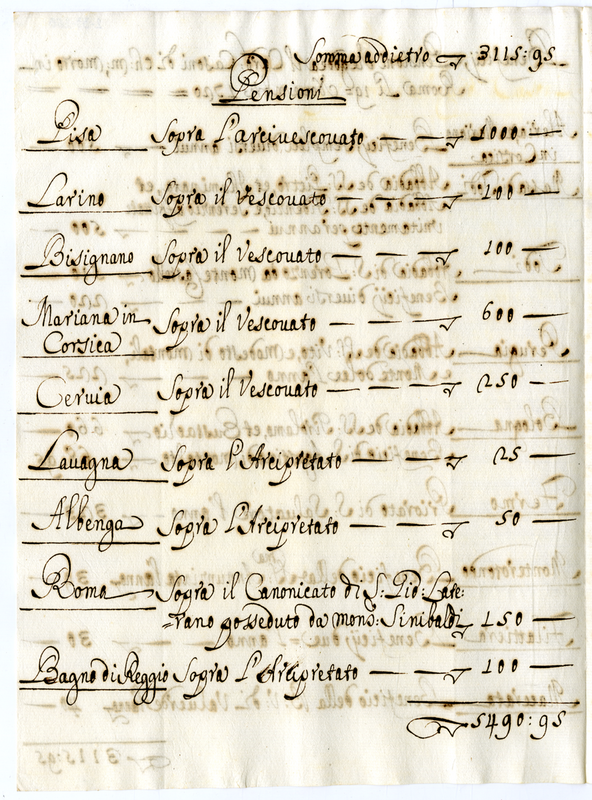 Somma addietro ▽ 3115:95
Pensioni
Pisa Sopra l'arcivescovato — — ▽ 1000 —
Larino Sopra il Vescovato — — — ▽ 100 —
Bisignano Sopra il Vescovato — — — ▽ 100 —
Mariana in Sopra il Vescovato — — — ▽ 600 —
Corsica
Cervia Sopra il Vescovato — — — ▽ 250 —
Lavagna Sopra l'Arcipretato — — — ▽ 25 —
Albenga Sopra l'Arcipretato — — — ▽ 50 —
Roma Sopra il Canonicato di S: Gio: Late:
=rano posseduto da Mons: Sinibaldi ▽ 150 —
Bagno di Reggio Sopra l'Arcipretato — — ▽ 100 —
▽ 5490:95